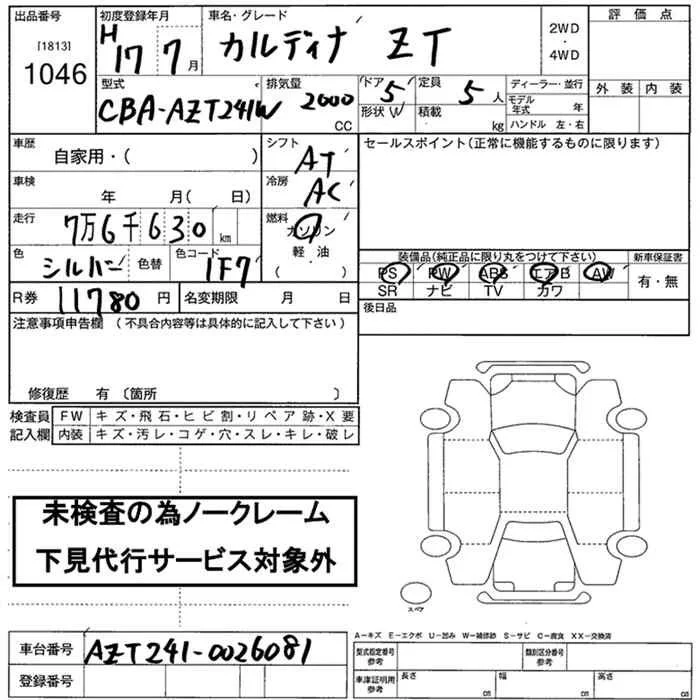 出品番号 初度登録年月 車名・グレード 評価点
[1813] 1046 H 17 7月 カルディナ ZT 2WD・4WD 外装 内装
型式 排気量 ドア 5 定員 5人 ディーラー・並行
CBA-AZT241W 2000 CC 形状 W 積載 kg モデル年式 年
ハンドル 左・右
車歴 自家用・( ) シフト AT セールスポイント(正常に機能するものに限ります)
車検 年 月( 日) 冷房 AC
走行 7万6千630km 燃料 ガソリン 軽油 ・( )
色 シルバー 色替 色コード 1F7
装備品(純正品に限り丸をつけて下さい) 新車保証書
PS PW ABS エアB AW 有・無
SR ナビ TV カワ
R券 11780円 名変期限 月 日 後日品
注意事項申告欄 (不具合内容等は具体的に記入して下さい)
修復歴 有 〔箇所 〕
検査員 FW キズ・飛石・ヒビ割・リペア跡・X要
記入欄 内装 キズ・汚レ・コゲ・穴・スレ・キレ・破レ
未検査の為ノークレーム
下見代行サービス対象外
スペア
A-キズ E-エクボ U-凹み W-補修跡 S-サビ C-腐食 XX-交換済
車台番号 AZT241-0026081 型式指定番号 参考 類別区分番号 参考
登録番号 車庫証明用 参考 長さ cm 幅 cm 高さ cm